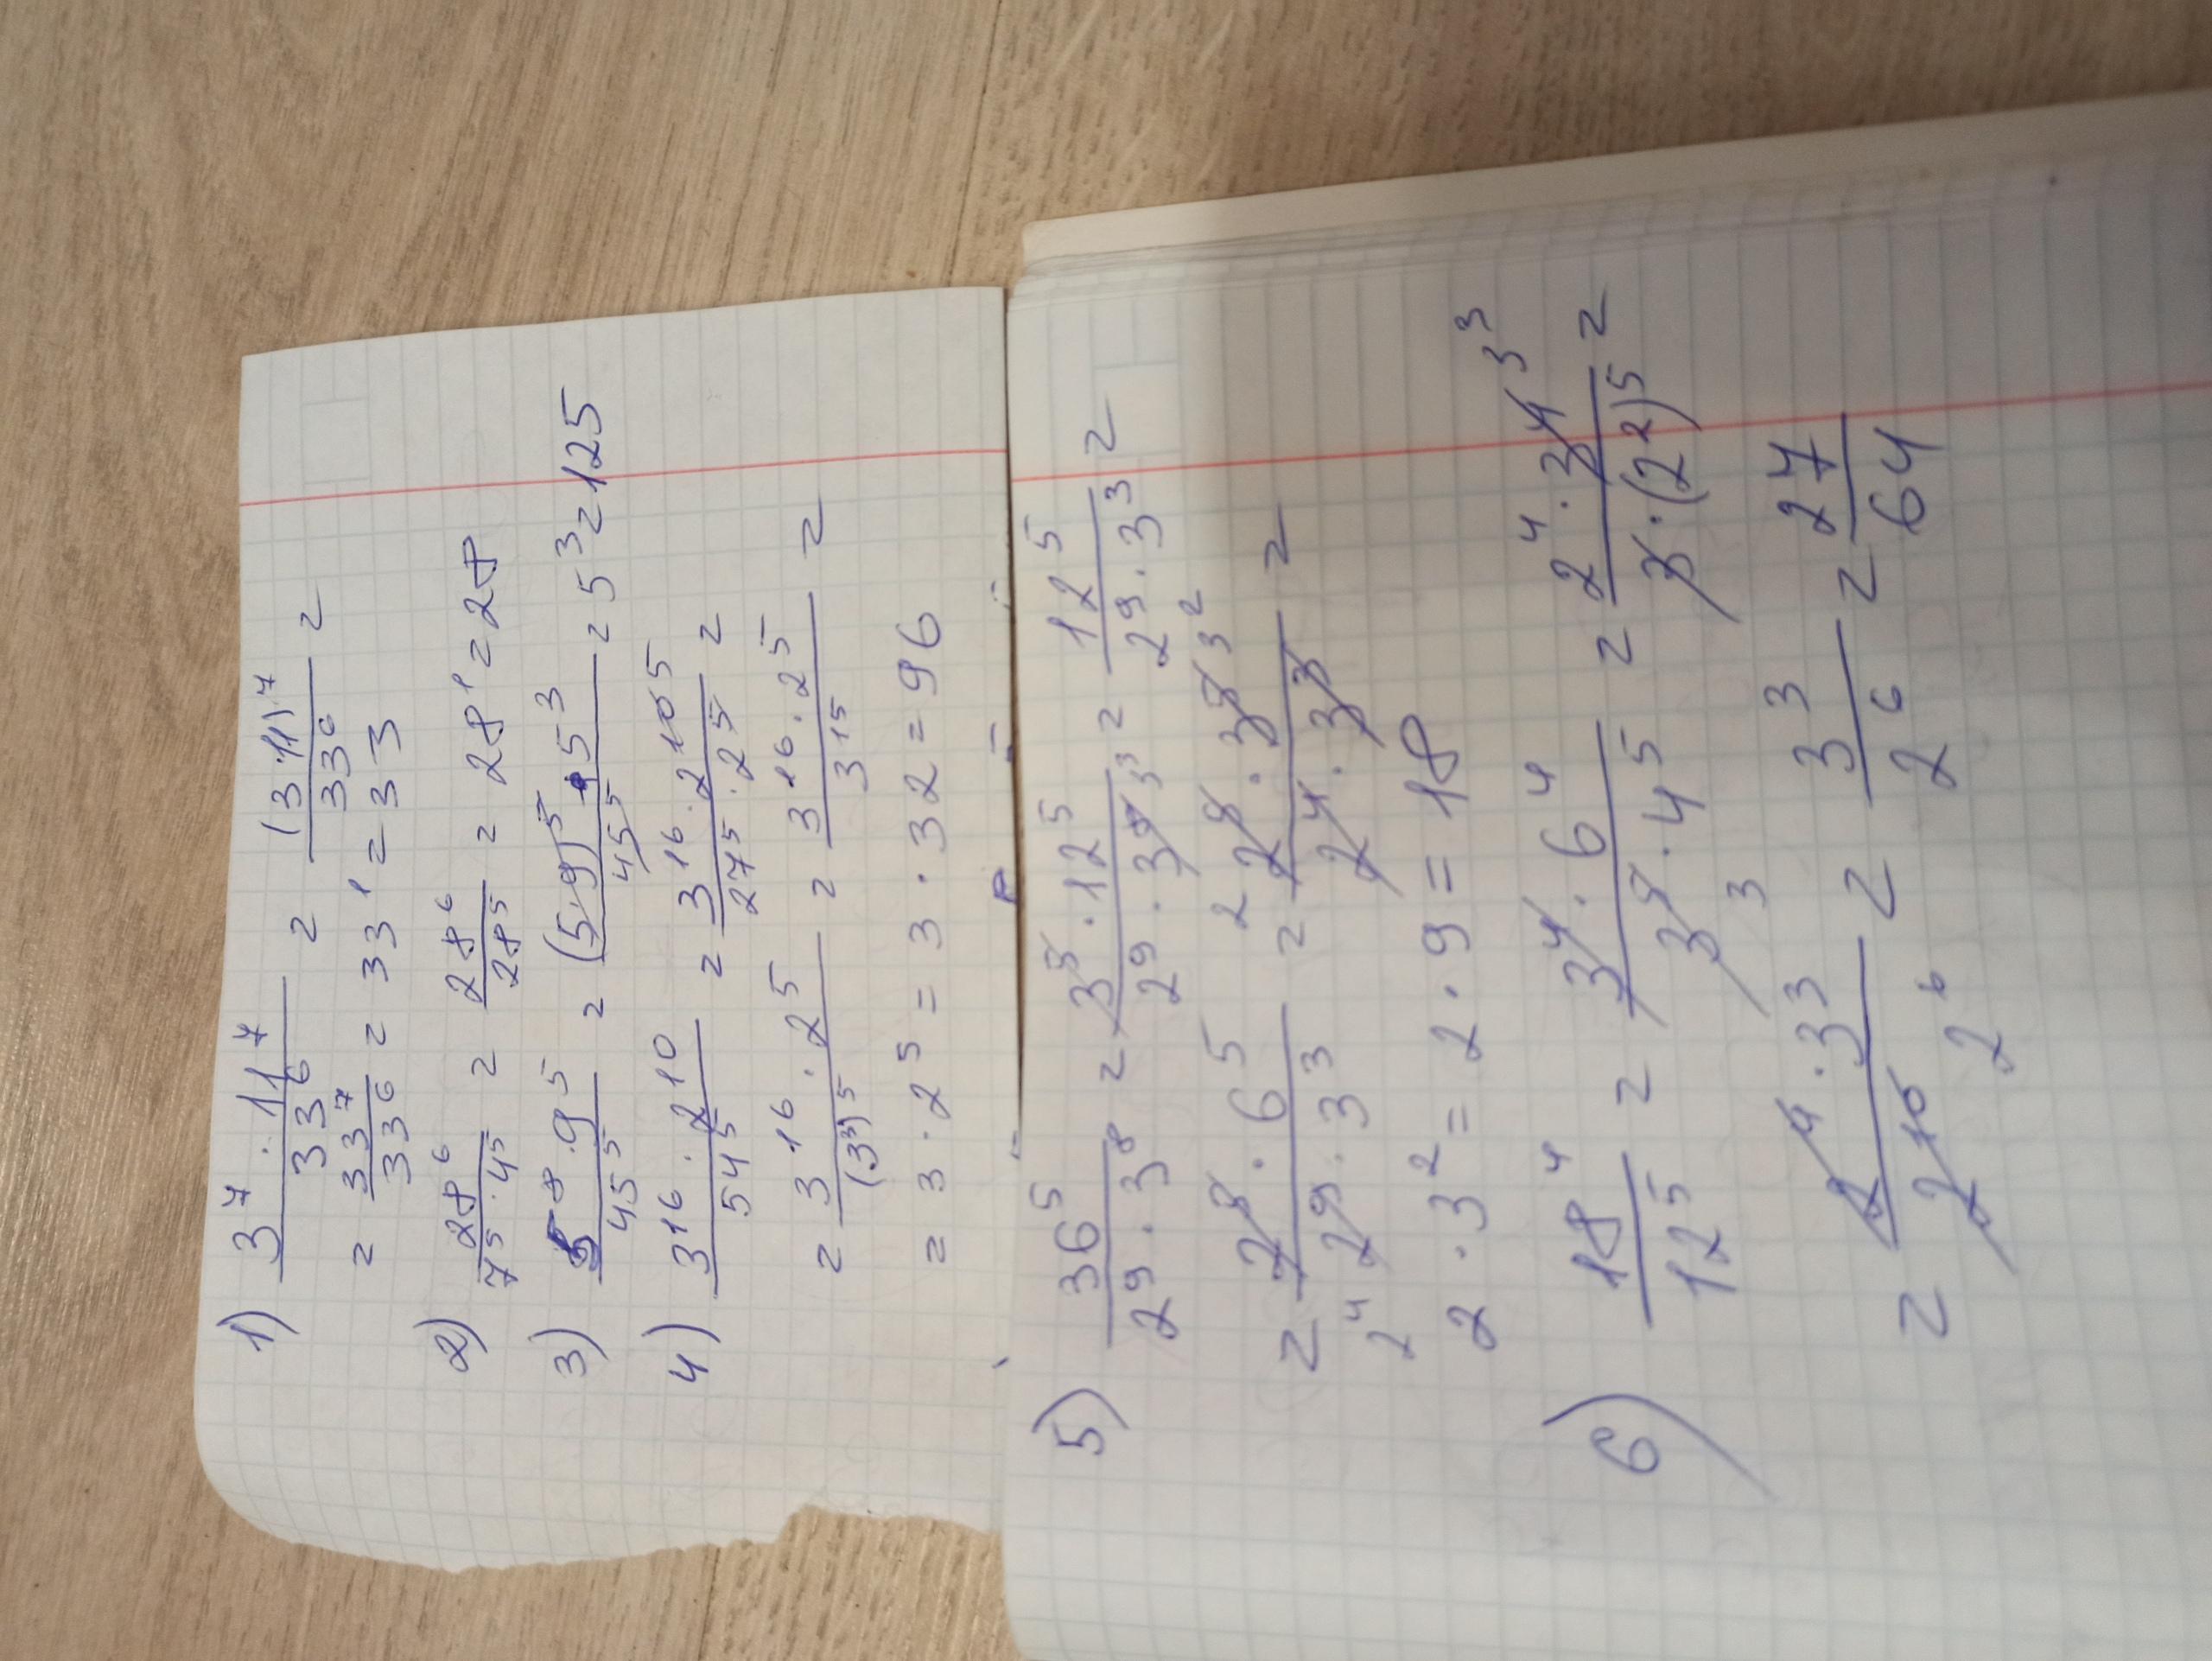 1) 3^7 · 11^7 / 33^6 = (3·11)^7 / 33^6 =
= 33^7 / 33^6 = 33^1 = 33
2) 28^6 / 7^5 · 4^5 = 28^6 / 28^5 = 28^1 = 28
3) 5^8 · 9^5 / 45^5 = (5·9)^5 · 5^3 / 45^5 = 5^3 = 125
4) 3^16 · 2^10 / 54^5 = 3^16 · 2^10 5 / 27^5 · 2^5 =
= 3^16 · 2^5 / (3^3)^5 = 3^16 · 2^5 / 3^15 =
= 3 · 2^5 = 3 · 32 = 96
5) 36^5 / 2^9 · 3^8 = 3^5 · 12^5 / 2^9 · 3^8 3^3 = 12^5 / 2^9 · 3^3 =
= 2^5 · 6^5 / 2^9 · 3^3 2^4 = 2 2^5 · 3^5 3^2 / 2^4 · 3^3 =
2 · 3^2 = 2 · 9 = 18
6) 18^4 / 12^5 = 3^4 · 6^4 / 3^5 · 4^5 3 = 2^4 · 3^4 3^3 / 3 · (2^2)^5 =
= 2^4 · 3^3 / 2^10 2^6 = 3^3 / 2^6 = 27 / 64